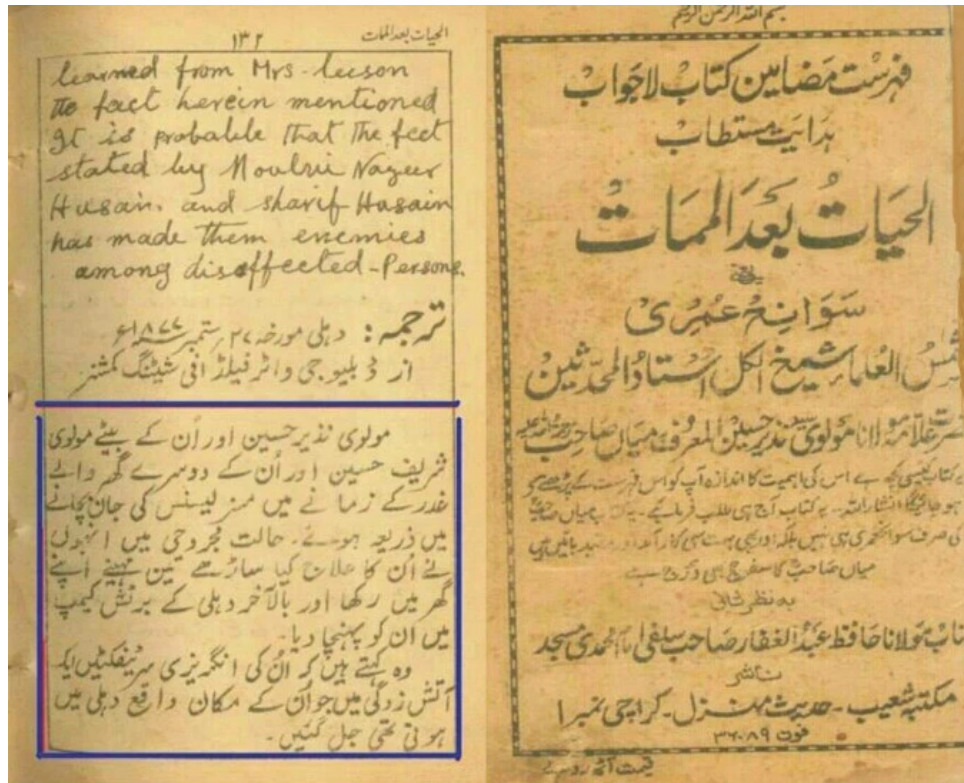 الحیات بعد الممات
۱۳۲
learned from Mrs-leeson
the fact herein mentioned
It is probable that the fect
stated by Moulvie Nazeer
Husain. and sharif Hasain
has made them enemies
among disaffected-Persons.
ترجمہ: دہلی مورخہ ۲۷ ستمبر ۱۸۷۷ء
از ڈبلیو جی واٹر فیلڈ افی شیٹنگ کمشنر
مولوی نذیر حسین اور اُن کے بیٹے مولوی
شریف حسین اور اُن کے دوسرے گھر والے
غدر کے زمانے میں مسز لیسنس کی جان بچانے
میں ذریعہ ہوئے۔ حالت مجروحی میں انہوں
نے اُن کا علاج کیا ساڑھے تین مہینے اپنے
گھر میں رکھا اور بالآخر دہلی کے برٹش کیمپ
میں ان کو پہنچا دیا۔
وہ کہتے ہیں کہ اُن کی انگریزی سرٹیفکٹیں ایک
آتش زدگی میں جو اُن کے مکان واقع دہلی میں
ہوئی تھی جل گئیں۔
بسم اللہ الرحمن الرحیم
فہرست مضامین کتاب لاجواب
ہدایت مستطاب
الحیات بعد الممات
یعنی
سوانح عمری
شمس العلماء شیخ الکل استاد المحدثین
حضرت علامہ مولانا مولوی سید نذیر حسین المعروف میاں صاحب
یہ کتاب کیسی کچھ ہے اس کی اہمیت کا اندازہ آپ کو اس فہرست کے پڑھنے سے
ہو جائیگا انشاء اللہ۔ یہ کتاب آج ہی طلب فرمائیے۔ یہ کتاب میاں صاحب
کی صرف سوانحعمری ہی نہیں بلکہ اور بھی بہت سی کارآمد اور مفید باتیں ہیں
میاں صاحب کا سفر حج بھی درج ہے
بہ نظر ثانی
جناب مولانا حافظ عبد الغفار صاحب سلفی امام محمدی مسجد
ناشر
مکتبہ شعیب۔ حدیث منزل۔ کراچی نمبر ۱
فون ۳۶۰۸۹
قیمت آٹھ روپے